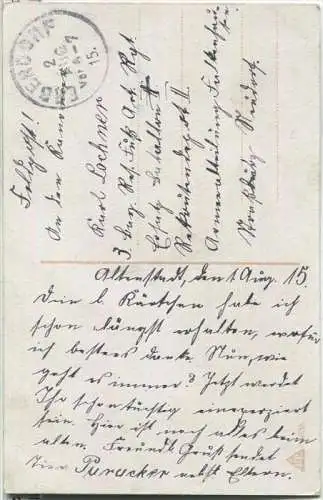 EBERSDORF
2
AUG
Vor 4-5
15.
Feldpost!
An den Kanonier
Karl Lochner
3. Bay. Res. Fuß Art. Rgt
Ersatz Batallion
Rekrutendepot II
Armeeabteilung Falkenhausen
Straßburg Neudorf.
Altenstadt, den 1 Aug. 15.
Dein l. Kärtchen habe ich
schon längst erhalten, wofür
ich bestens danke. Nun, wie
geht es immer? Jetzt werdet
Ihr schon tüchtig einexerziert
sein. Hier ist noch alles beim
alten. Freundl. Gruß sendet
Puracker nebst Eltern.